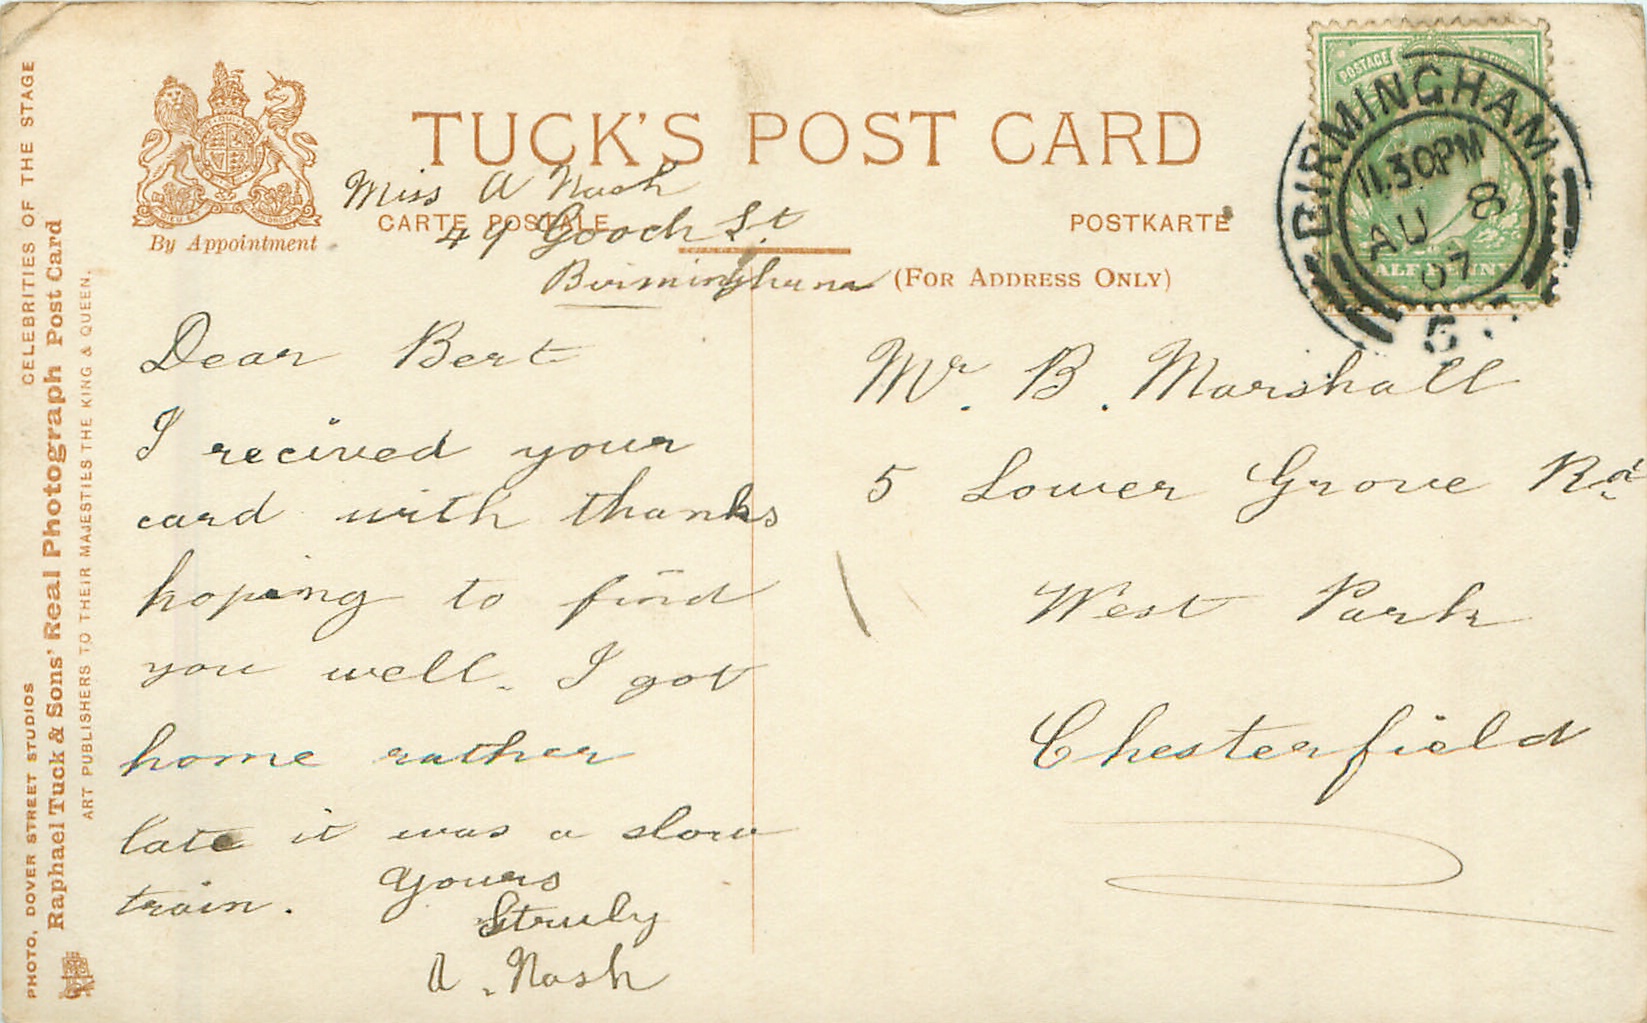 CELEBRITIES OF THE STAGE
PHOTO, DOVER STREET STUDIOS
Raphael Tuck & Sons' Real Photograph Post Card
ART PUBLISHERS TO THEIR MAJESTIES THE KING & QUEEN.
By Appointment
TUCK'S POST CARD
CARTE POSTALE
POSTKARTE
(FOR ADDRESS ONLY)
Miss A Nash
49 Gooch St
Birmingham
Dear Bert
I recived your
card with thanks
hoping to find
you well. I got
home rather
late it was a slow
train.
Yours
Struly
A. Nash
POSTAGE
BIRMINGHAM
11.30PM
AU 8
07
5
Mr. B. Marshall
5 Lower Grove Rd
West Park
Chesterfield